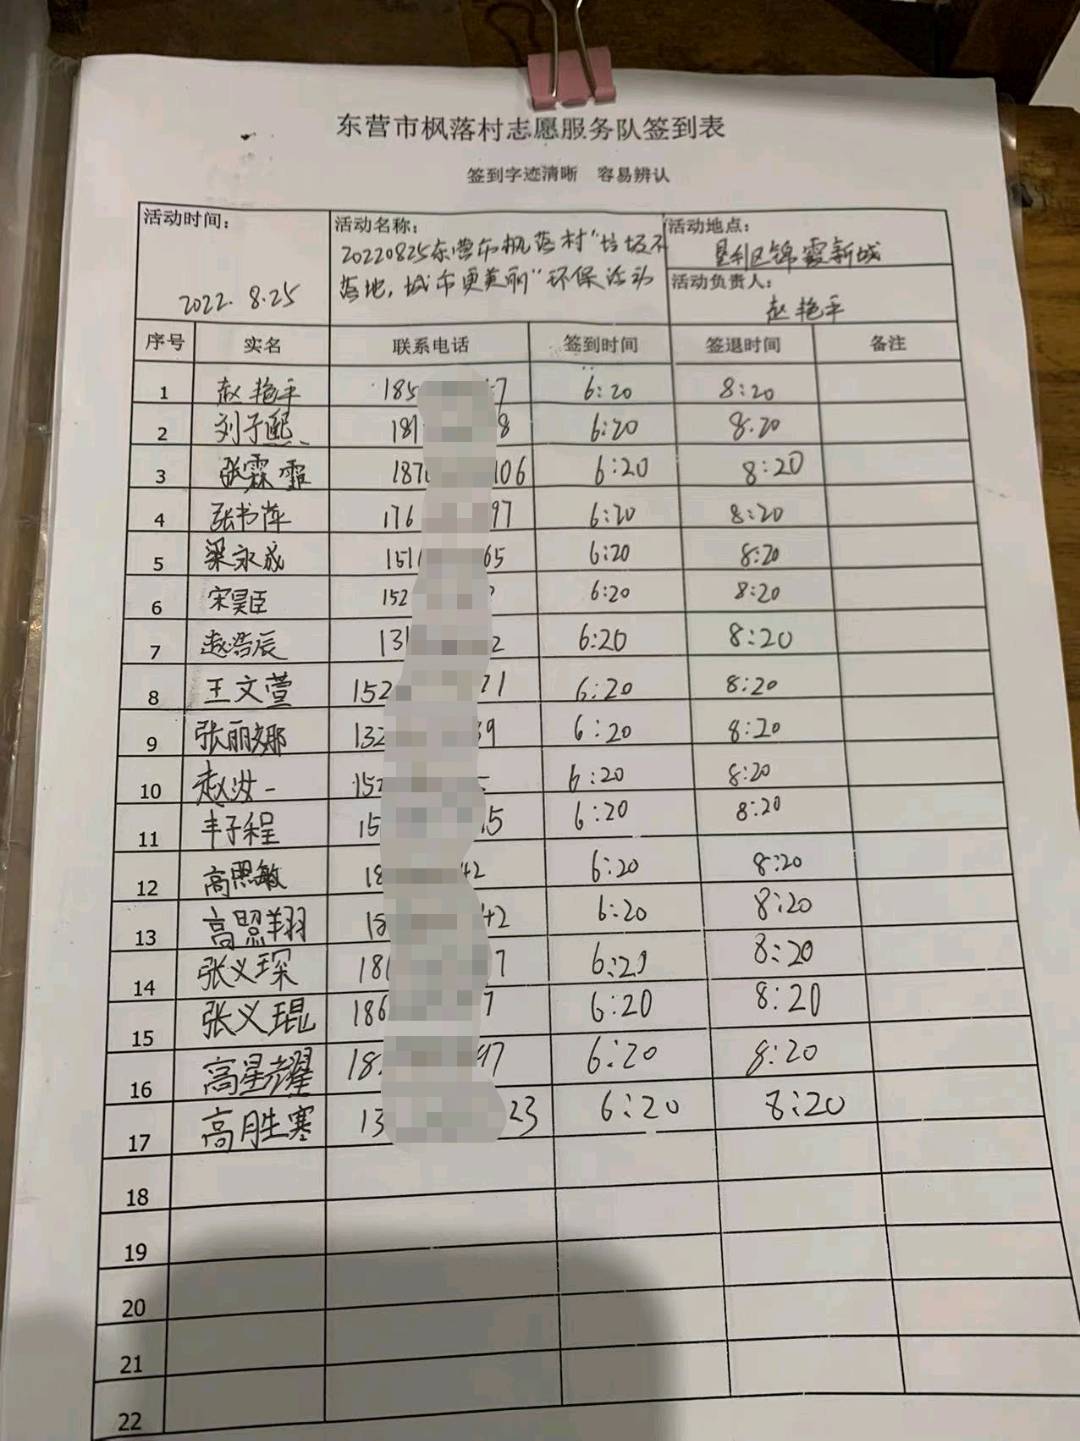 东营市枫落村志愿服务队签到表
签到字迹清晰 容易辨认
活动时间： 活动名称： 活动地点：
20220825东营市枫落村“垃圾不 垦利区锦霞新城
落地，城市更美丽”环保活动 活动负责人：
2022.8.25 赵艳平
序号 实名 联系电话 签到时间 签退时间 备注
1 赵艳平 185 7 6:20 8:20
2 刘子熙 181 8 6:20 8:20
3 张霖霏 187 106 6:20 8:20
4 张书萍 176 97 6:20 8:20
5 梁永成 151 65 6:20 8:20
6 宋昊臣 152 6:20 8:20
7 赵浩辰 131 2 6:20 8:20
8 王文萱 152 21 6:20 8:20
9 张丽娜 132 39 6:20 8:20
10 赵汝一 152 6:20 8:20
11 丰子程 15 15 6:20 8:20
12 高熙敏 18 42 6:20 8:20
13 高照翔 18 42 6:20 8:20
14 张义琛 186 7 6:20 8:20
15 张义琨 186 7 6:20 8:20
16 高星耀 18 97 6:20 8:20
17 高胜寒 13 23 6:20 8:20
18
19
20
21
22